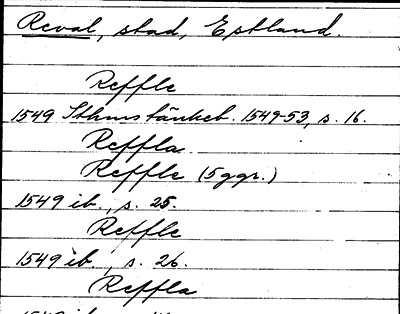 Reval, stad, Estland.
Reffle
1549 Sthms tänkeb. 1549-53, s. 16.
Reffla
Reffle (5 ggr.)
1549 ib., s. 25.
Reffle
1549 ib., s. 26.
Reffla